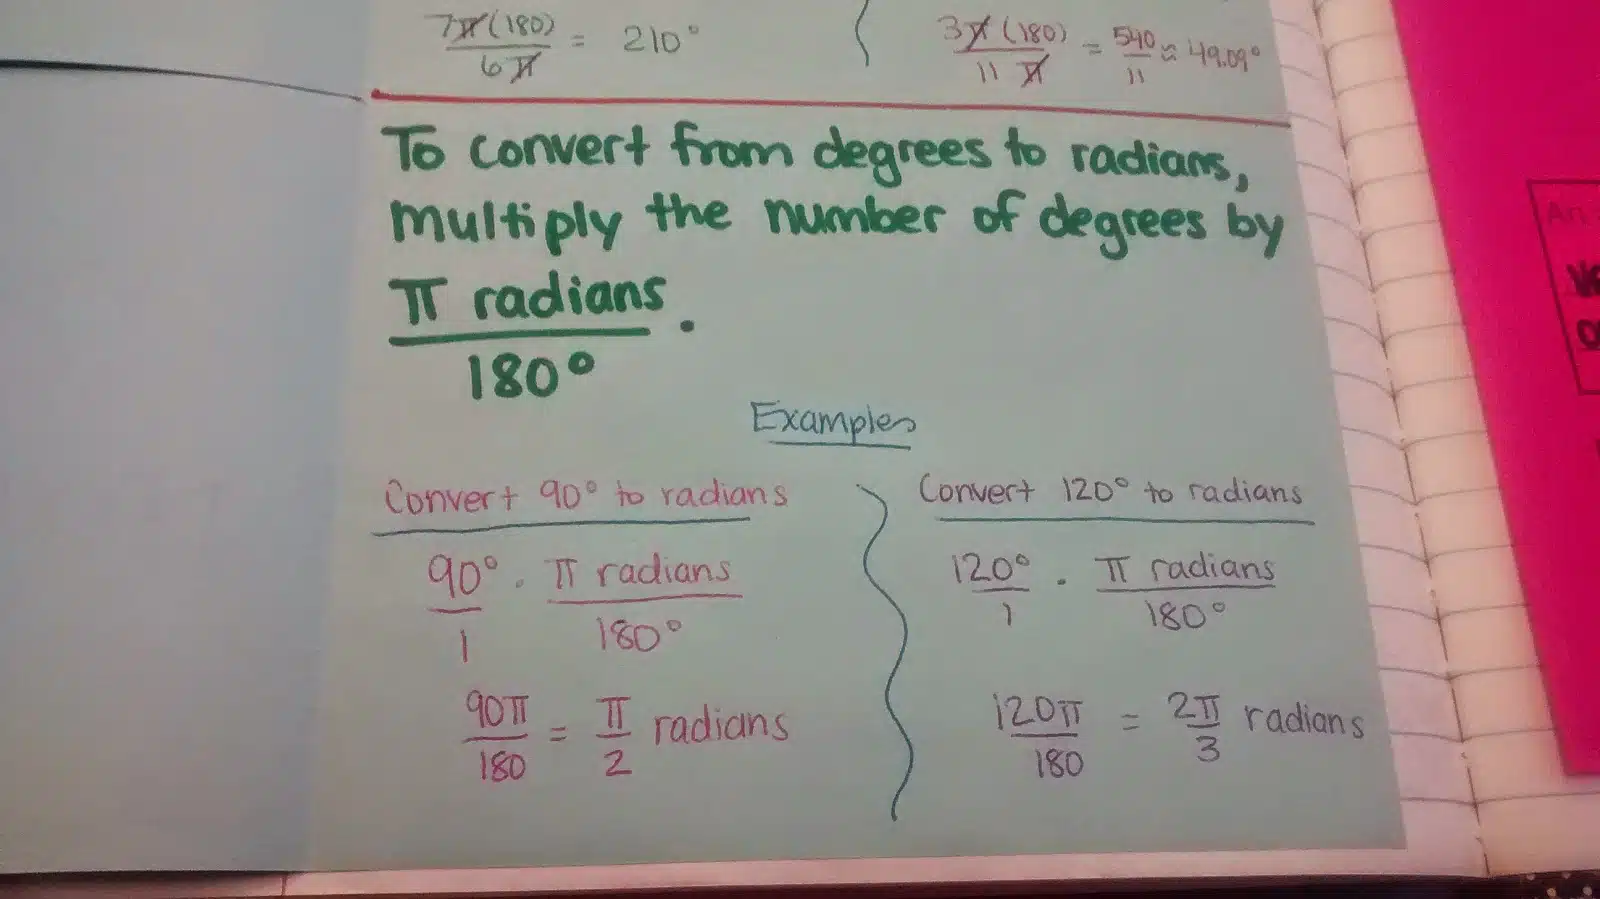 7π(180)/6π = 210°
3π(180)/11π = 540/11 ≈ 49.09°
To convert from degrees to radians,
multiply the number of degrees by
π radians/180°.
Examples
Convert 90° to radians
90°/1 · π radians/180°
90π/180 = π/2 radians
Convert 120° to radians
120°/1 · π radians/180°
120π/180 = 2π/3 radians